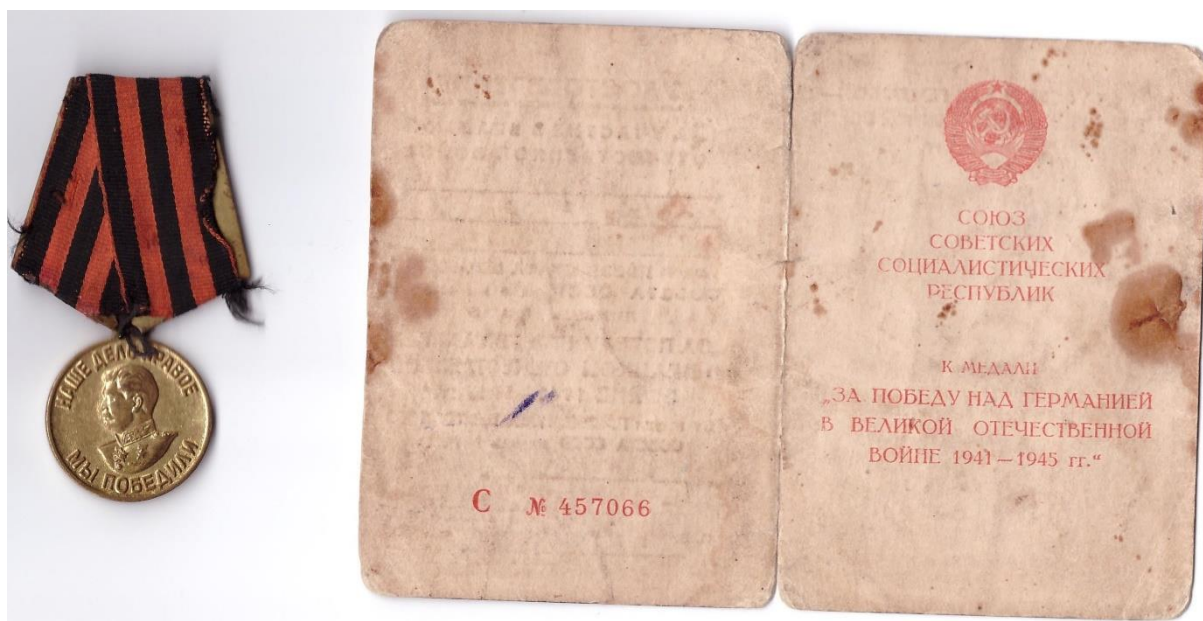 НАШЕ ДЕЛО ПРАВОЕ
МЫ ПОБЕДИЛИ
С № 457066
СОЮЗ
СОВЕТСКИХ
СОЦИАЛИСТИЧЕСКИХ
РЕСПУБЛИК
К МЕДАЛИ
„ЗА ПОБЕДУ НАД ГЕРМАНИЕЙ
В ВЕЛИКОЙ ОТЕЧЕСТВЕННОЙ
ВОЙНЕ 1941—1945 гг.“